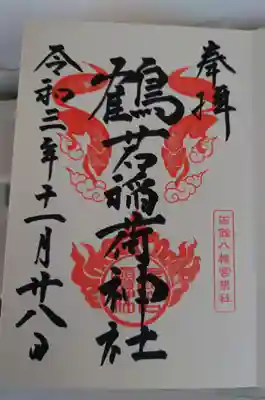 奉拝
函館八幡宮末社
鶴若稲荷神社
令和三年十一月廿八日